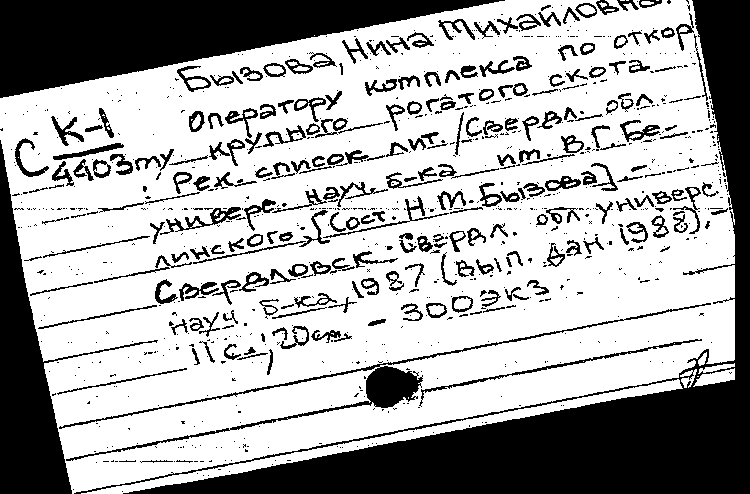 Бызова, Нина Михайловна.
С К-1
4403
Оператору комплекса по откор
му крупного рогатого скота
: Рек. список лит. / Свердл. обл.
универс. науч. б-ка им. В.Г. Бе-
линского; [Сост. Н.М. Бызова]. -
Свердловск: Свердл. обл. универс
науч. б-ка, 1987 (вып. дан. 1988). -
11 с.; 20 см. - 300 экз.